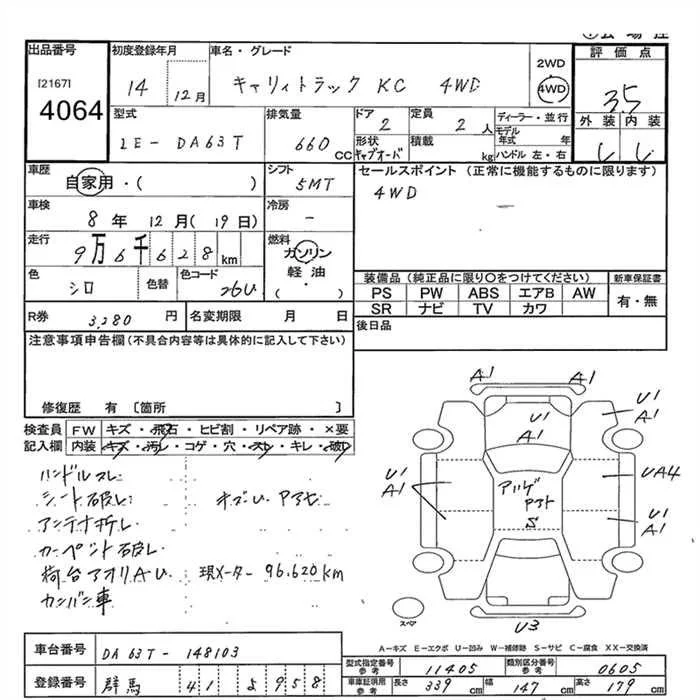 出品番号 初度登録年月 車名・グレード 2WD 評価点
[2167] 4064 14 12月 キャリィトラック KC 4WD 4WD 3.5
型式 排気量 ドア 定員 ディーラー・並行 外装 内装
LE-DA63T 660 CC 2 2人 モデル年式 年
形状 積載 kg ハンドル 左・右
キャブオーバ
車歴 自家用・( ) シフト 5MT セールスポイント (正常に機能するものに限ります)
4WD
車検 8年 12月 (19日) 冷房 -
走行 9万6千628km 燃料 ガソリン 軽油・( )
色 シロ 色替 色コード 26U
装備品 (純正品に限り○をつけてください) 新車保証書
PS PW ABS エアB AW 有・無
SR ナビ TV カワ
R券 3,280円 名変期限 月 日 後日品
注意事項申告欄(不具合内容等は具体的に記入して下さい)
修復歴 有 〔箇所 〕
検査員 FW キズ・飛石・ヒビ割・リペア跡・×要
記入欄 内装 キズ・汚れ・コゲ・穴・スレ・キレ・破れ
ハンドルスレ
シート破れ キズU アアセ
アンテナ折レ
カーペット破レ
荷台アオリAU 現メーター 96,620km
カンバン車
A1 A1
U1 A1
U1 A1
U1 A1
UA4
U1 A1
S
U3
スペア
A-キズ E-エクボ U-凹み W-補修跡 S-サビ C-腐食 XX-交換済
車台番号 DA63T-148103
型式指定番号 参考 11405 類別区分番号 参考 0605
登録番号 群馬 41 958
車庫証明用 参考 長さ 339cm 幅 147cm 高さ 179cm